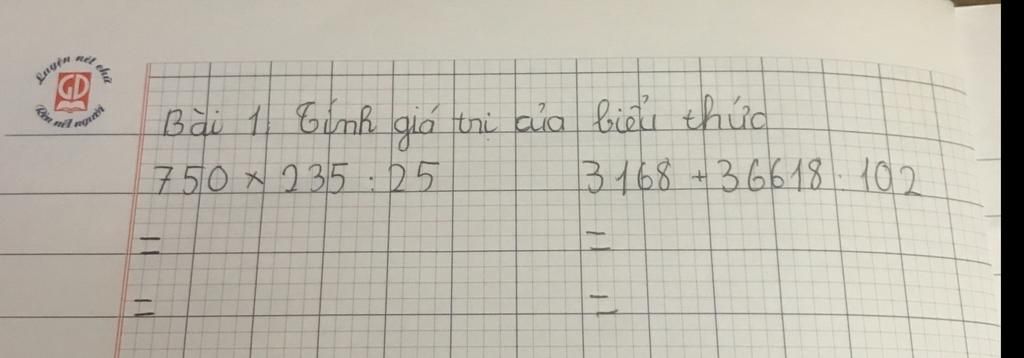 Luyện nét chữ
GD
Rèn nết người
Bài 1, Tính giá trị của biểu thức
750 x 235 : 25 3168 + 36618 : 102
= =
= =